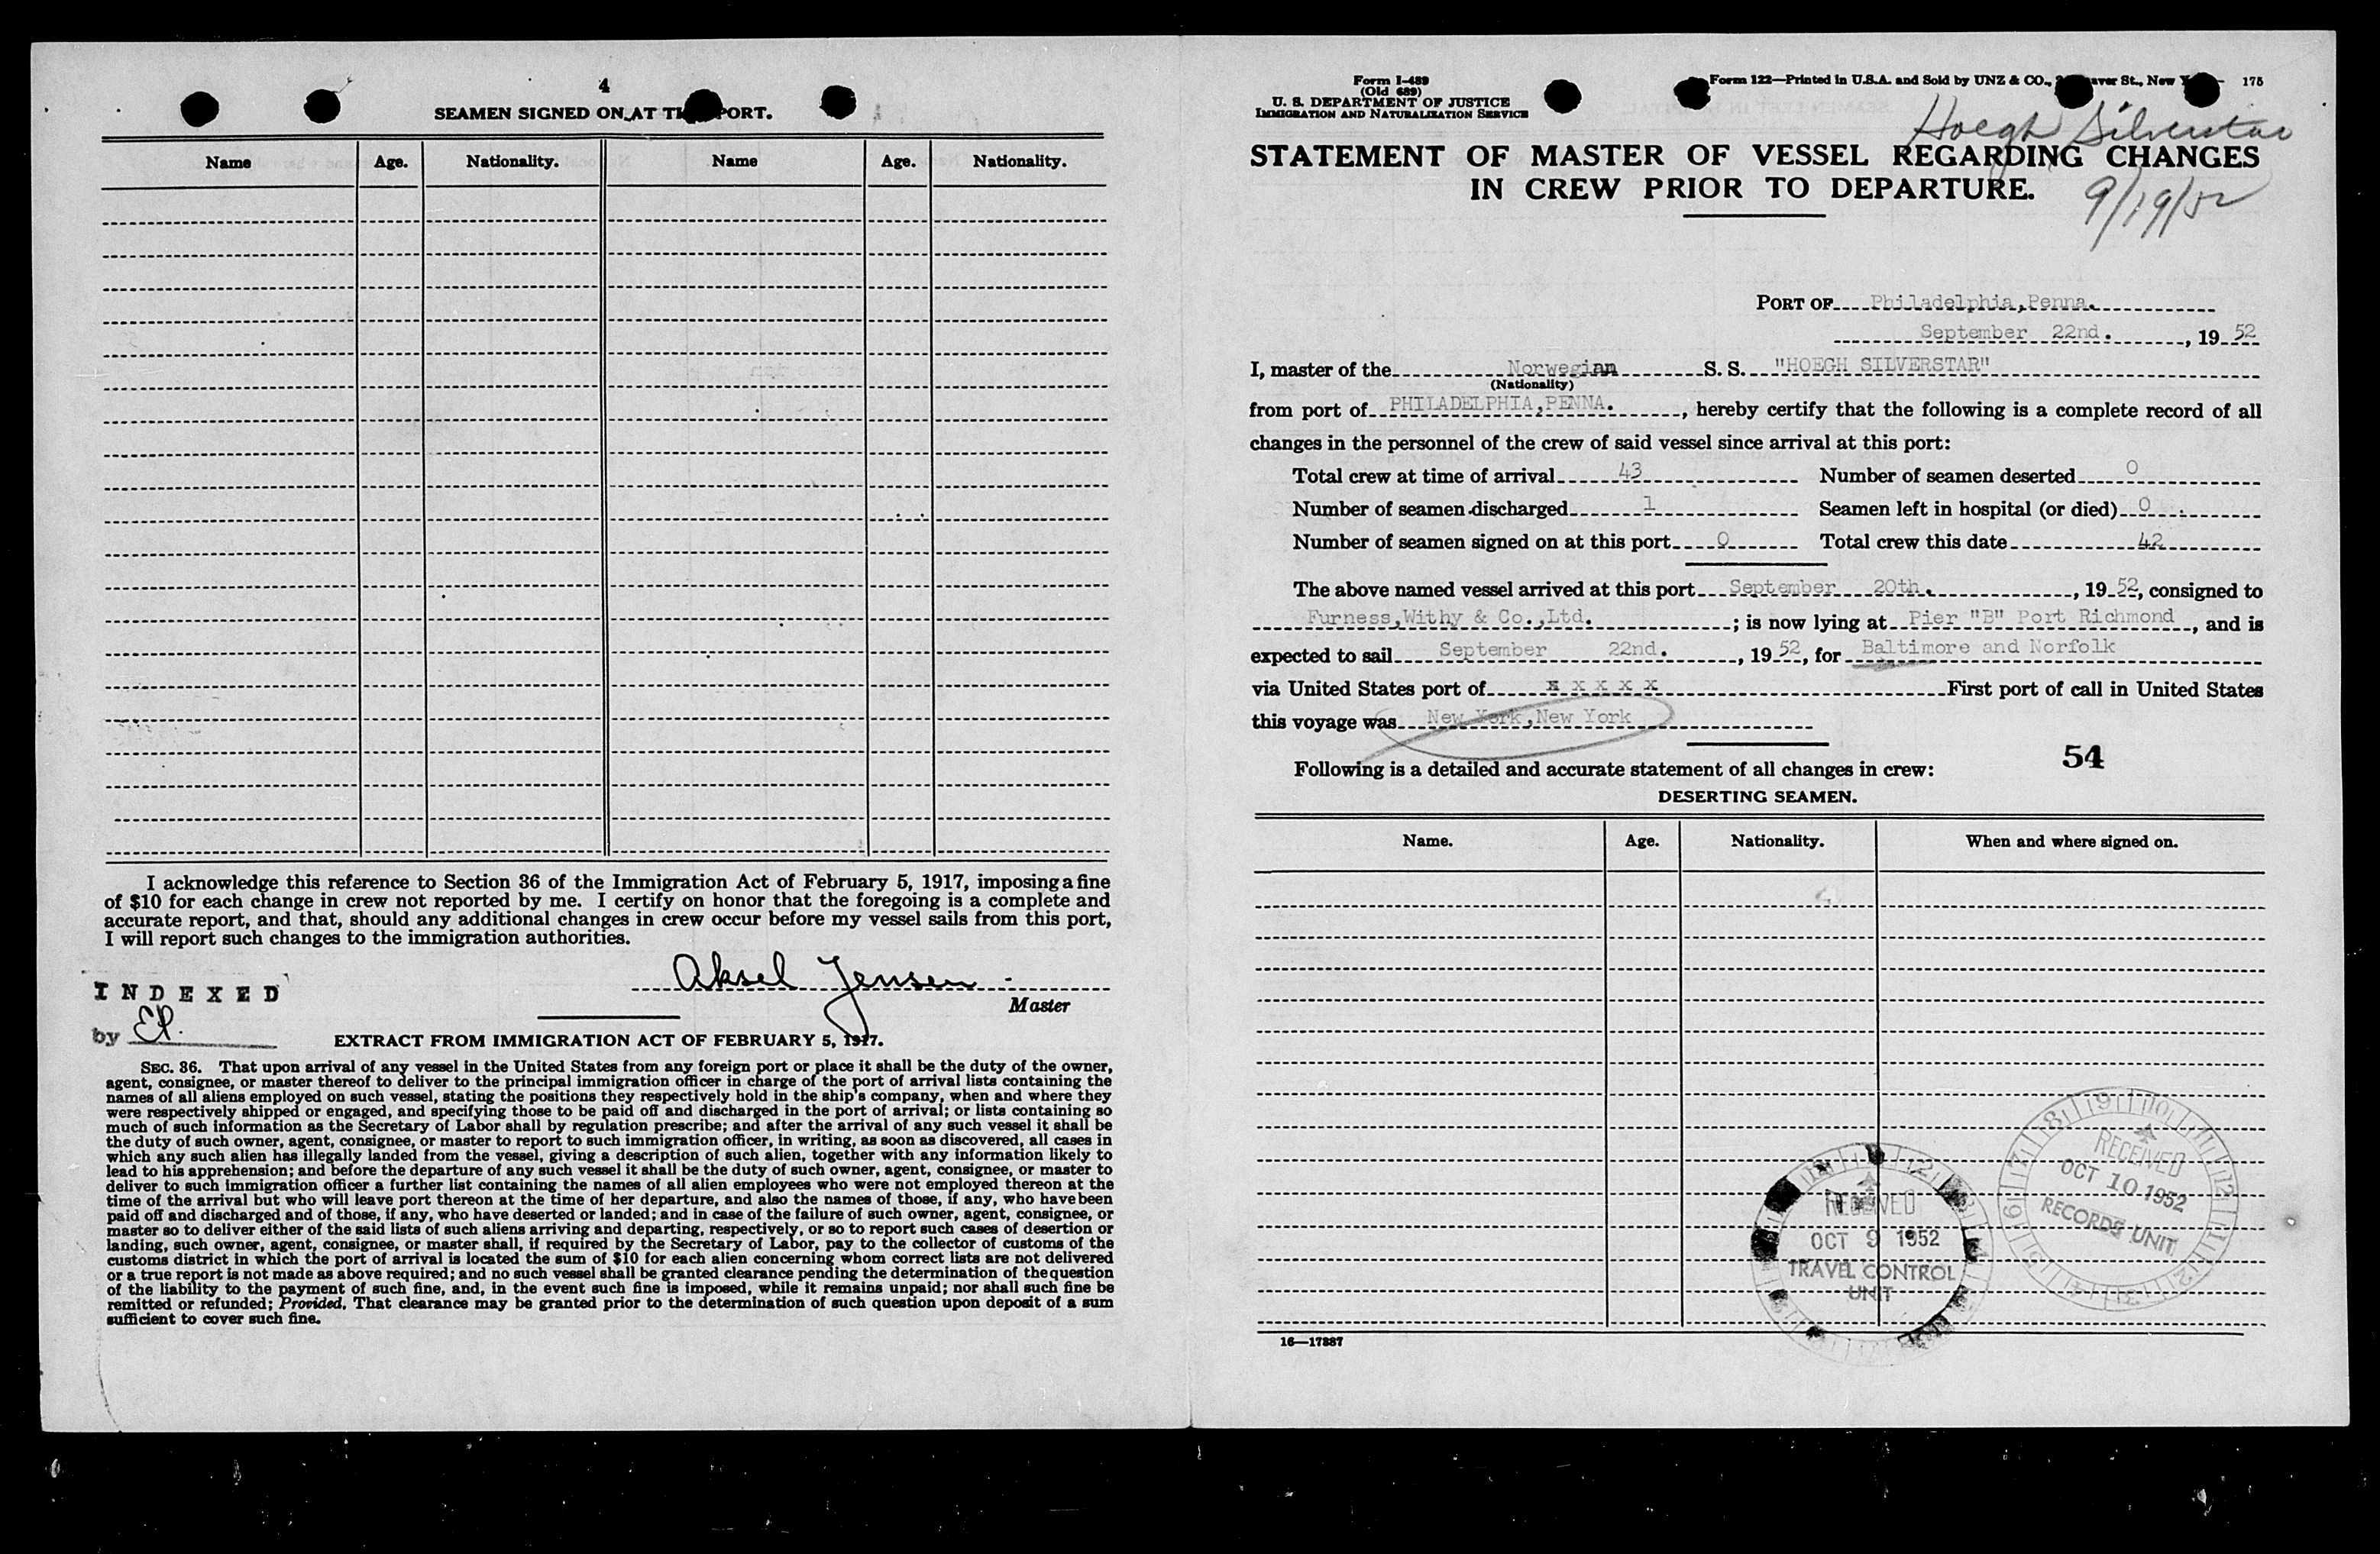 4
SEAMEN SIGNED ON AT TH PORT.
Name Age. Nationality. Name Age. Nationality.
I acknowledge this reference to Section 36 of the Immigration Act of February 5, 1917, imposing a fine
of $10 for each change in crew not reported by me. I certify on honor that the foregoing is a complete and
accurate report, and that, should any additional changes in crew occur before my vessel sails from this port,
I will report such changes to the immigration authorities.
Aksel Jensen
Master
INDEXED
by
EXTRACT FROM IMMIGRATION ACT OF FEBRUARY 5, 1917.
SEC. 36. That upon arrival of any vessel in the United States from any foreign port or place it shall be the duty of the owner,
agent, consignee, or master thereof to deliver to the principal immigration officer in charge of the port of arrival lists containing the
names of all aliens employed on such vessel, stating the positions they respectively hold in the ship's company, when and where they
were respectively shipped or engaged, and specifying those to be paid off and discharged in the port of arrival; or lists containing so
much of such information as the Secretary of Labor shall by regulation prescribe; and after the arrival of any such vessel it shall be
the duty of such owner, agent, consignee, or master to report to such immigration officer, in writing, as soon as discovered, all cases in
which any such alien has illegally landed from the vessel, giving a description of such alien, together with any information likely to
lead to his apprehension; and before the departure of any such vessel it shall be the duty of such owner, agent, consignee, or master to
deliver to such immigration officer a further list containing the names of all alien employees who were not employed thereon at the
time of the arrival but who will leave port thereon at the time of her departure, and also the names of those, if any, who have been
paid off and discharged and of those, if any, who have deserted or landed; and in case of the failure of such owner, agent, consignee, or
master so to deliver either of the said lists of such aliens arriving and departing, respectively, or so to report such cases of desertion or
landing, such owner, agent, consignee, or master shall, if required by the Secretary of Labor, pay to the collector of customs of the
customs district in which the port of arrival is located the sum of $10 for each alien concerning whom correct lists are not delivered
or a true report is not made as above required; and no such vessel shall be granted clearance pending the determination of the question
of the liability to the payment of such fine, and, in the event such fine is imposed, while it remains unpaid; nor shall such fine be
remitted or refunded; Provided, That clearance may be granted prior to the determination of such question upon deposit of a sum
sufficient to cover such fine.
Form I-489
(Old 689)
U. S. DEPARTMENT OF JUSTICE
IMMIGRATION AND NATURALIZATION SERVICE
Form 122—Printed in U.S.A. and Sold by UNZ & CO., St., New 175
Hoegh Silverstar
STATEMENT OF MASTER OF VESSEL REGARDING CHANGES
IN CREW PRIOR TO DEPARTURE.
9/19/52
PORT OF Philadelphia,Penna.
September 22nd. , 19 52
I, master of the Norwegian S. S. "HOEGH SILVERSTAR"
(Nationality)
from port of PHILADELPHIA,PENNA. , hereby certify that the following is a complete record of all
changes in the personnel of the crew of said vessel since arrival at this port:
Total crew at time of arrival 43 Number of seamen deserted 0
Number of seamen discharged 1 Seamen left in hospital (or died) 0
Number of seamen signed on at this port 0 Total crew this date 42
The above named vessel arrived at this port September 20th. , 19 52, consigned to
Furness,Withy & Co.,Ltd. ; is now lying at Pier "B" Port Richmond , and is
expected to sail September 22nd. , 19 52, for Baltimore and Norfolk
via United States port of x x x x x First port of call in United States
this voyage was New York,New York
54
Following is a detailed and accurate statement of all changes in crew:
DESERTING SEAMEN.
Name. Age. Nationality. When and where signed on.
RECEIVED
OCT 9 1952
TRAVEL CONTROL
UNIT
RECEIVED
OCT 10 1952
RECORDS UNIT
16—17887